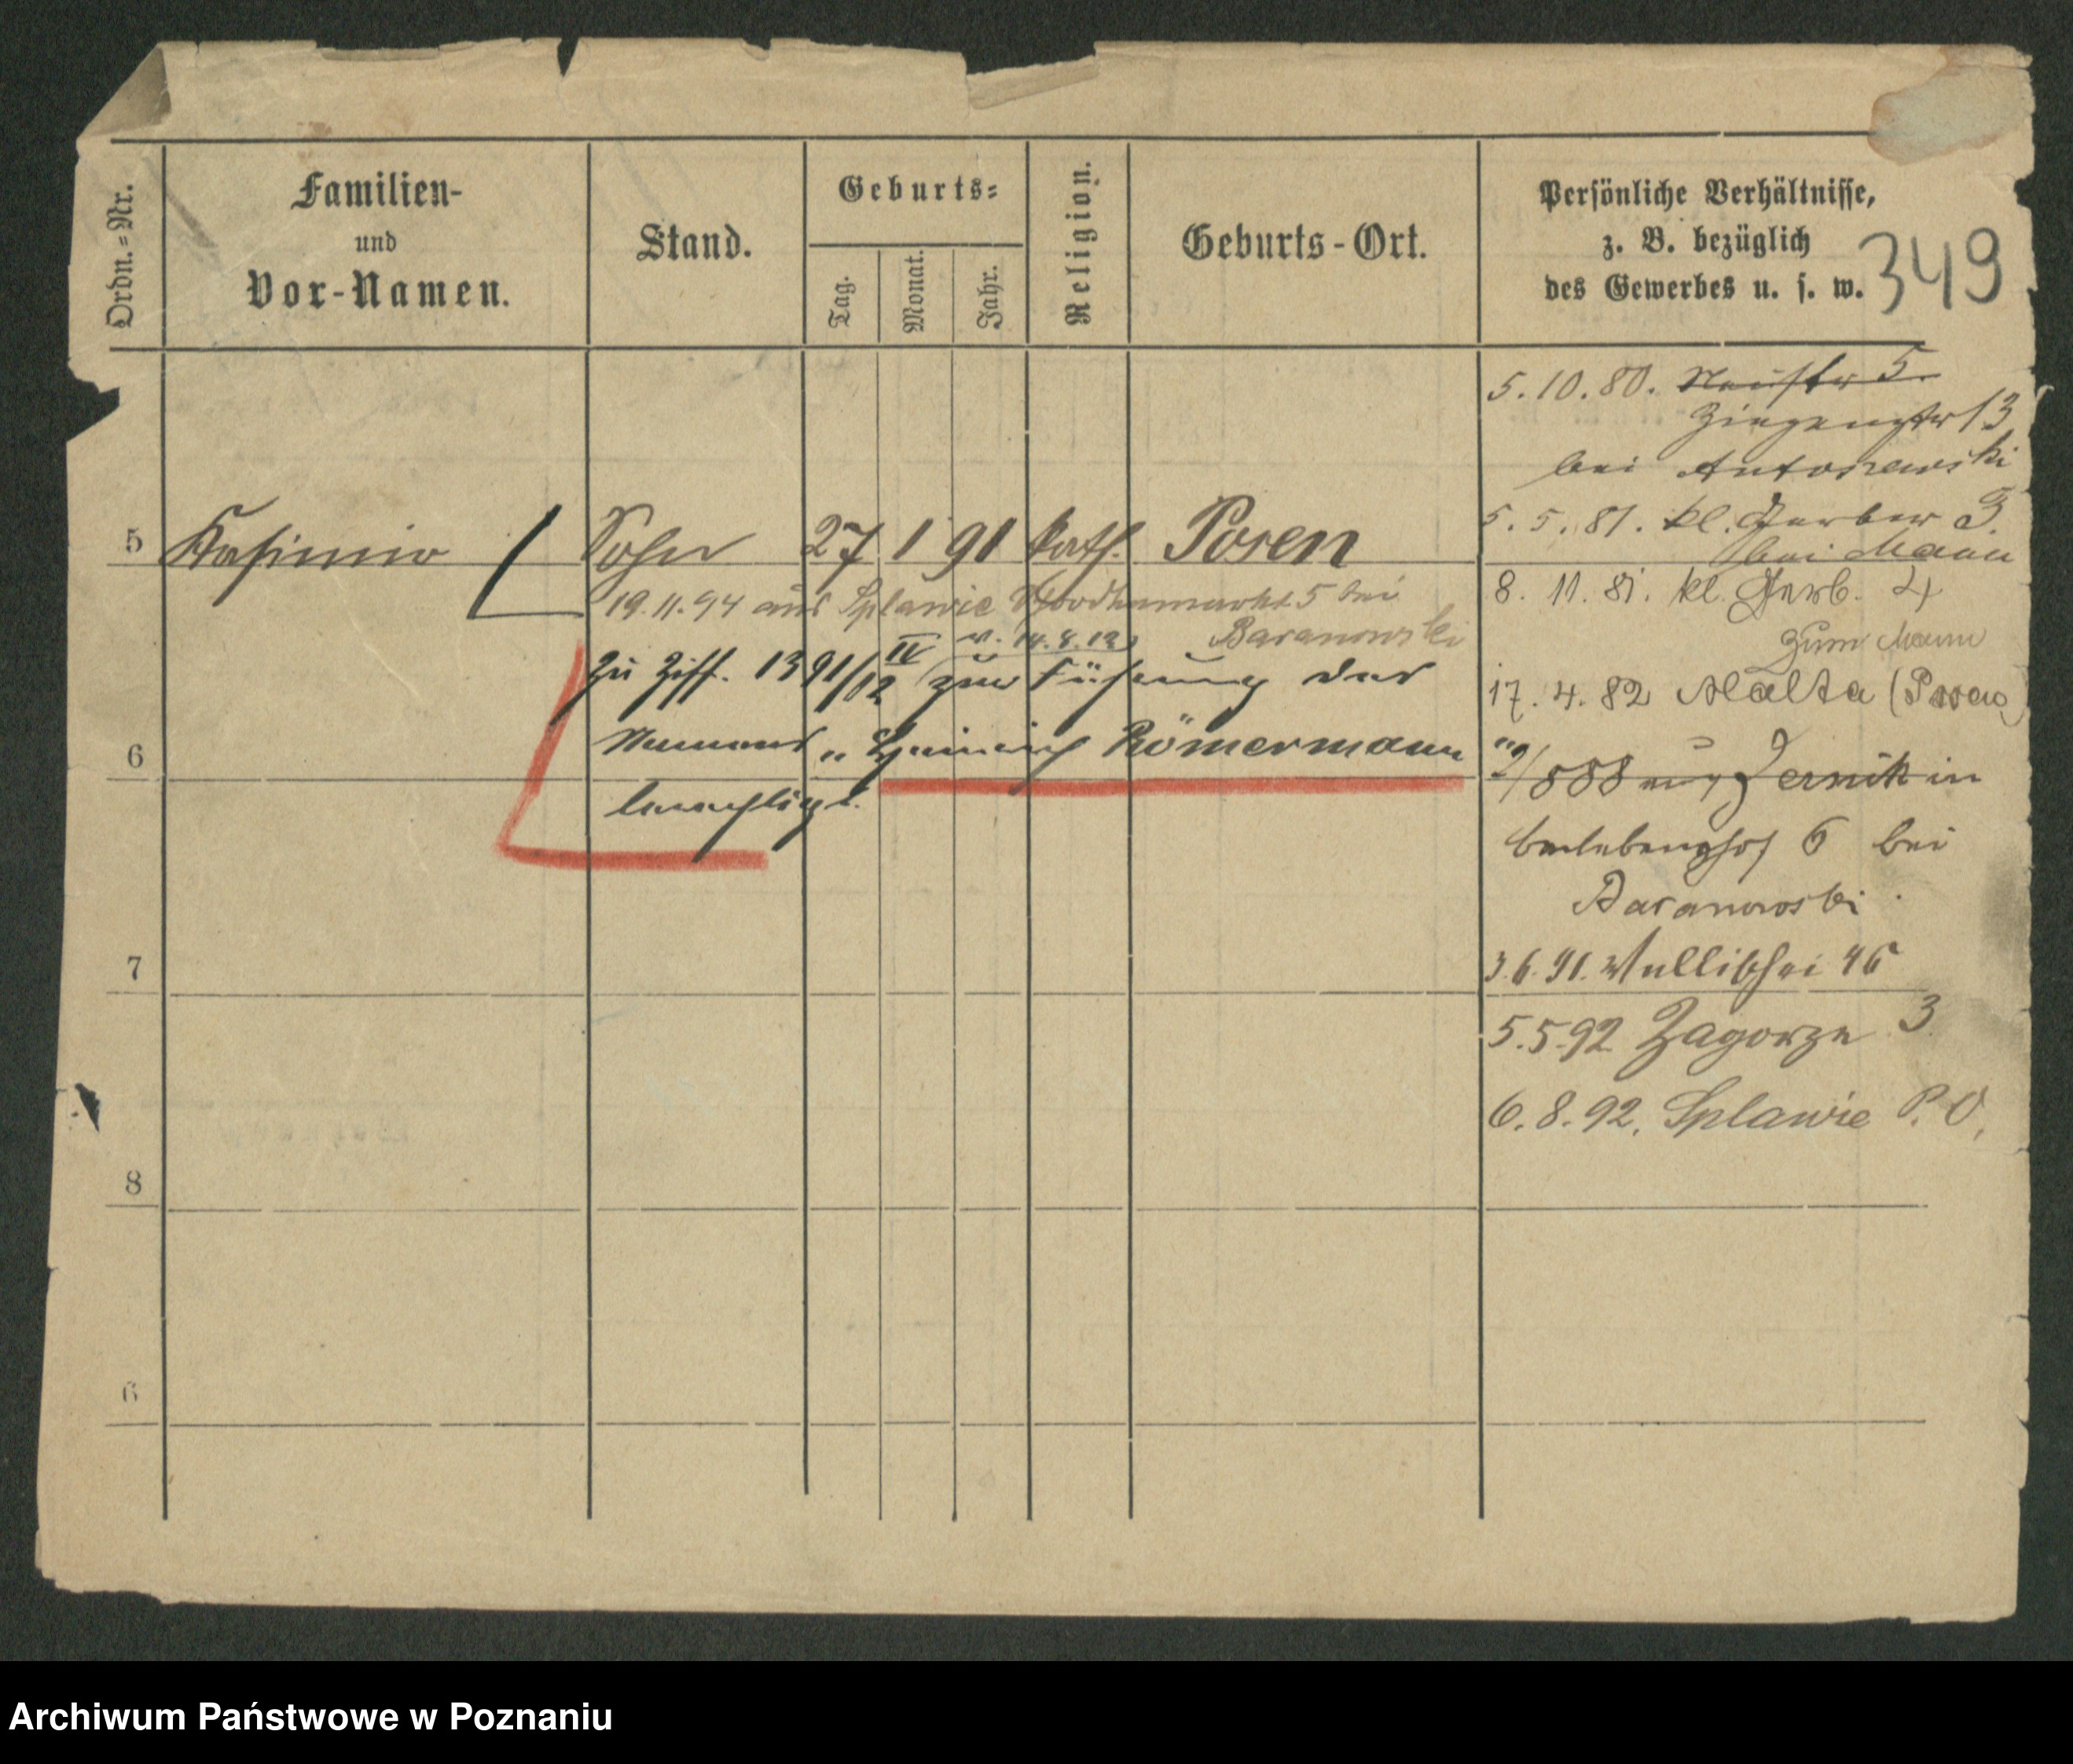 Ordn.-Nr.
Familien-
und
Vor-Namen.
Stand.
Geburts-
Tag.
Monat.
Jahr.
Religion.
Geburts-Ort.
Persönliche Verhältnisse,
z. B. bezüglich
des Gewerbes u. s. w.
349
5.10.80. Neustr 5.
Ziegenstr 13
bei Antoszewski
5.5.81. kl. Gerber 3.
bei Mann
5 Kasimir Sohn 27 1 91 kath. Posen
8. 11. 81. kl. Gerb. 4
19.11.94 aus Splawie 5 bei
Baranowski
zum Mann
v. 14.8.12
Zu Ziff. 1391/12 IV zur Führung des
17. 4. 82 Malta (Posen)
6
Namens „Heinrich Römermann"
berechtigt.
2/888 aus Zernik in
6 bei
Baranowski.
7
3.6.91. Wallischei 46
5.5.92 Zagorze 3
6.8.92. Splawie P. O.
8
6
Archiwum Państwowe w Poznaniu